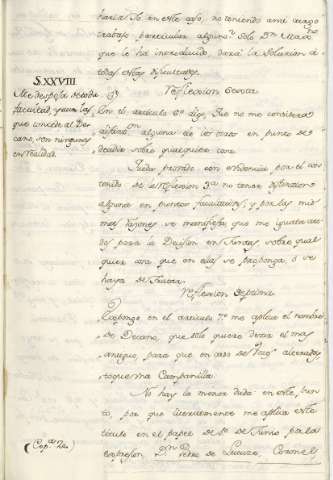 haria. Si en este caso, no teniendo
trabajo particular alguno, solo Dn.
que le ha introducido, dará la solucion á
todas estas dificultades.
§. XXVIII
Reflexion Sexta
Me despoja de toda
facultad, y aun las
que concede al De-
cano, son ningunas
en realidad.
En el articulo 6º digo, Que no me considera
distincion alguna de los otros en punto de
decidir sobre qualquiera cosa.
Queda probado con evidencia por el con-
tenido de la reflexion 3ª no tener distincion
alguna en puntos facultativos, y por las mis-
mas razones se manifiesta que me iguala
dos para la Decision en Juntas, sobre qual
quiera cosa que en ellas se proponga, ó se
haya de tratar.
Reflexion Septima
Expongo en el articulo 7º me aplica el nombre
de Decano, que solo quiere decir el mas
antiguo, para que en caso de
toque una Campanilla.
No hay la menor duda en este pun-
to, por que literalmente me aplica este
titulo en el papel de 1º de Junio por la
(Copª 22)
expresion, Dn. Pedro de Lucuze, Coronel,